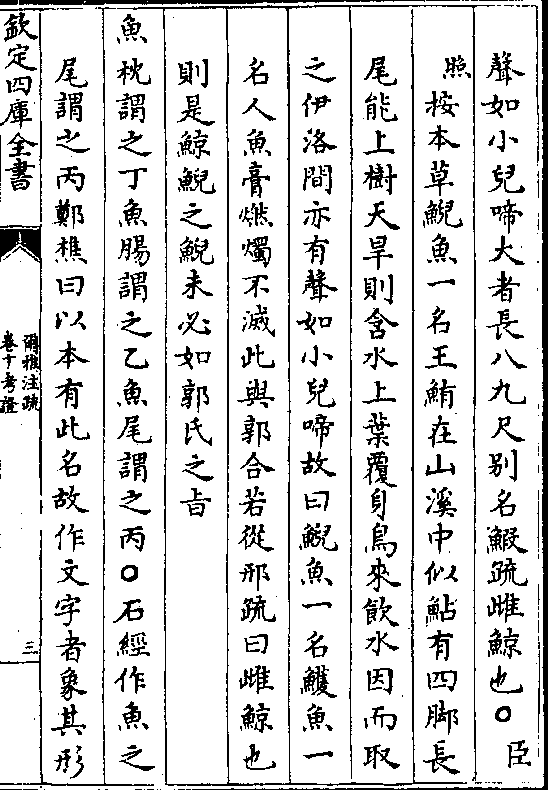 聲如小兒啼大者長八九尺别名鰕疏雌鯨也○臣
照按本草鯢魚一名王鮪在山溪中似鮎有四脚長
尾能上樹天旱則含水上葉覆身鳥來飲水因而取
之伊洛間亦有聲如小兒啼故曰鯢魚一名鱯魚一
名人魚膏燃燭不滅此與郭合若從邢疏曰雌鯨也
則是鯨鯢之鯢未必如郭氏之㫖
魚枕謂之丁魚腸謂之乙魚尾謂之丙○石經作魚之
尾謂之丙鄭樵曰以本有此名故作文字者象其形
欽定四庫全書
爾雅注疏
卷十考證
三